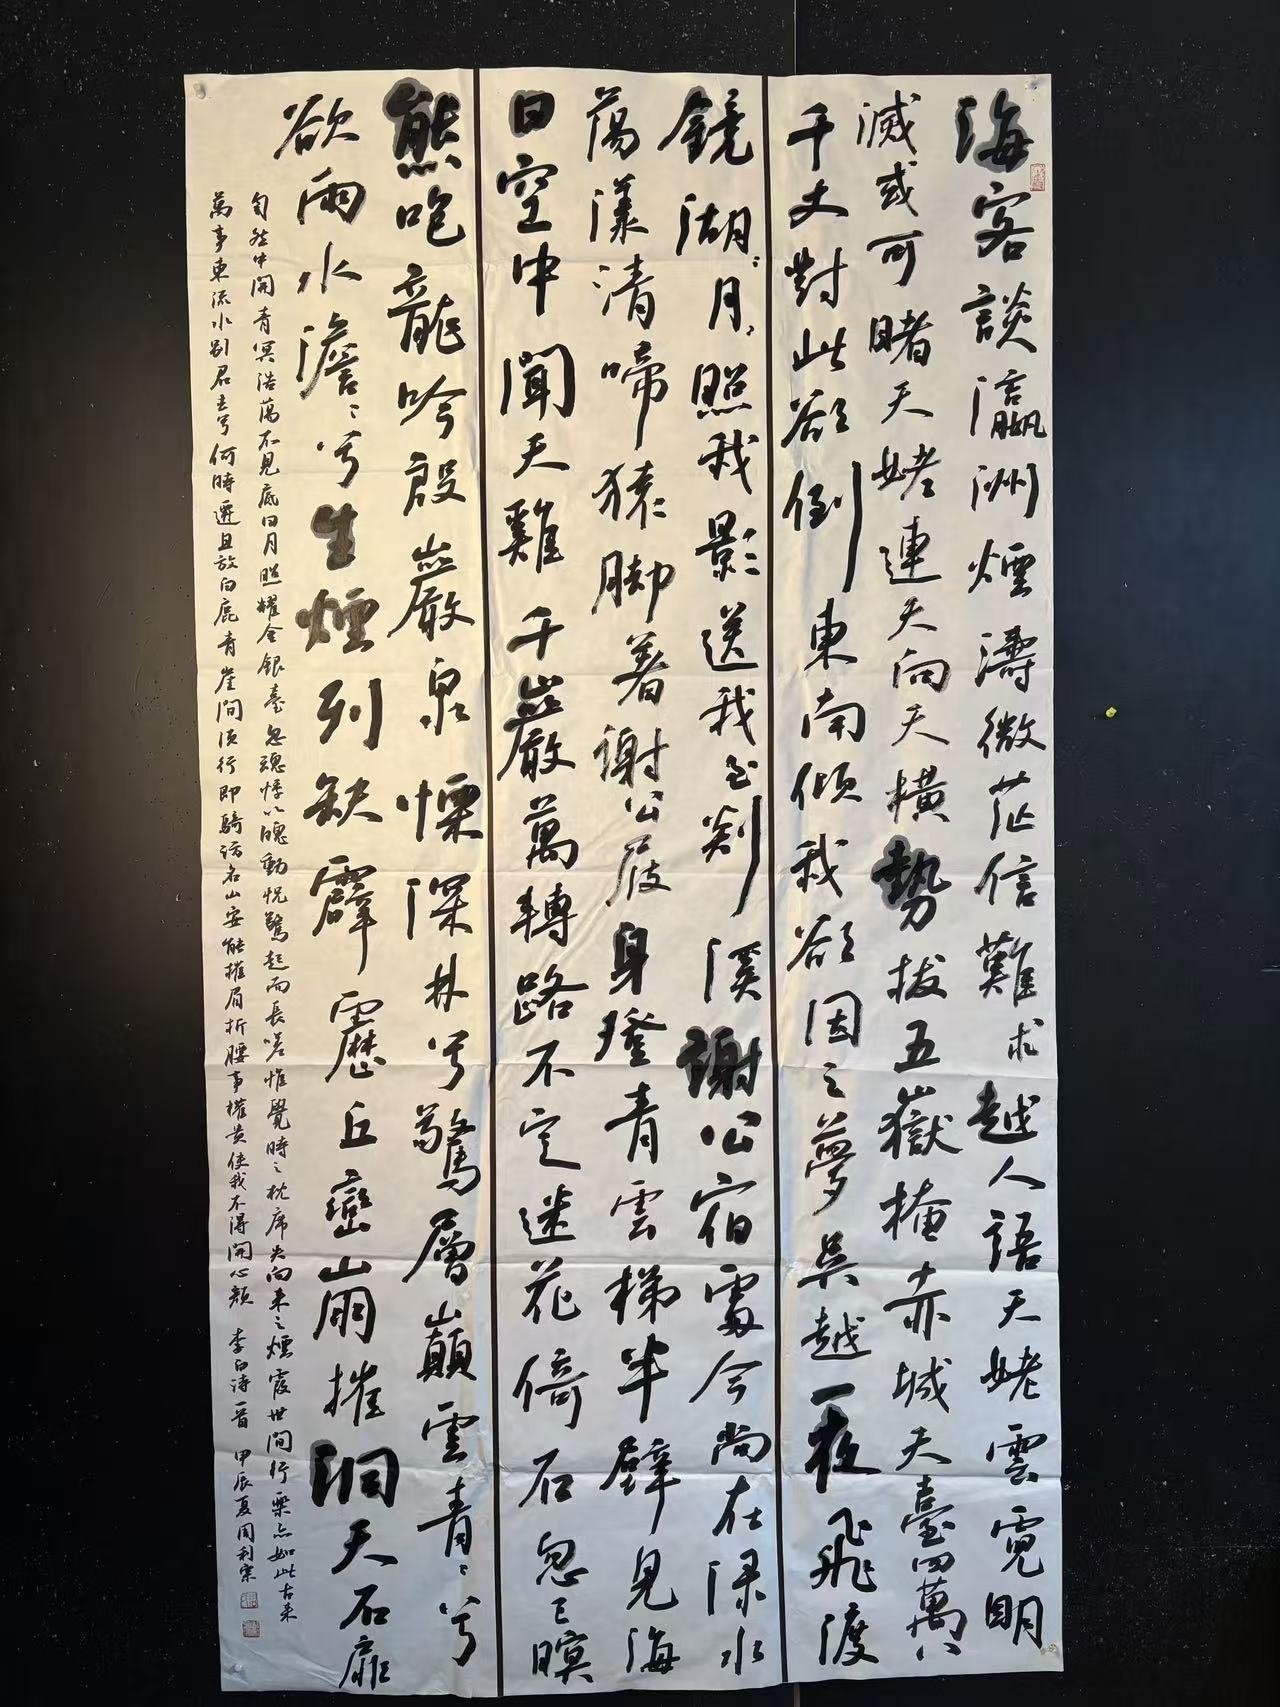 海客談瀛洲煙濤微茫信難求越人語天姥雲霓明
滅或可睹天姥連天向天橫勢拔五嶽掩赤城天臺四萬八
千丈對此欲倒東南傾我欲因之夢吳越一夜飛渡
鏡湖月〻照我影送我至剡溪謝公宿處今尚在淥水
蕩漾清啼猿脚著謝公屐身登青雲梯半壁見海
日空中聞天雞千巖萬轉路不定迷花倚石忽已暝
熊咆龍吟殷巖泉慄深林兮驚層巔雲青〻兮
欲雨水澹〻兮生煙列缺霹靂丘巒崩摧洞天石扉
訇然中開青冥浩蕩不見底日月照耀金銀臺忽魂悸以魄動怳驚起而長嗟惟覺時之枕席失向來之煙霞世間行樂亦如此古來
萬事東流水別君去兮何時還且放白鹿青崖間須行即騎訪名山安能摧眉折腰事權貴使我不得開心顏 李白詩一首 甲辰夏周利